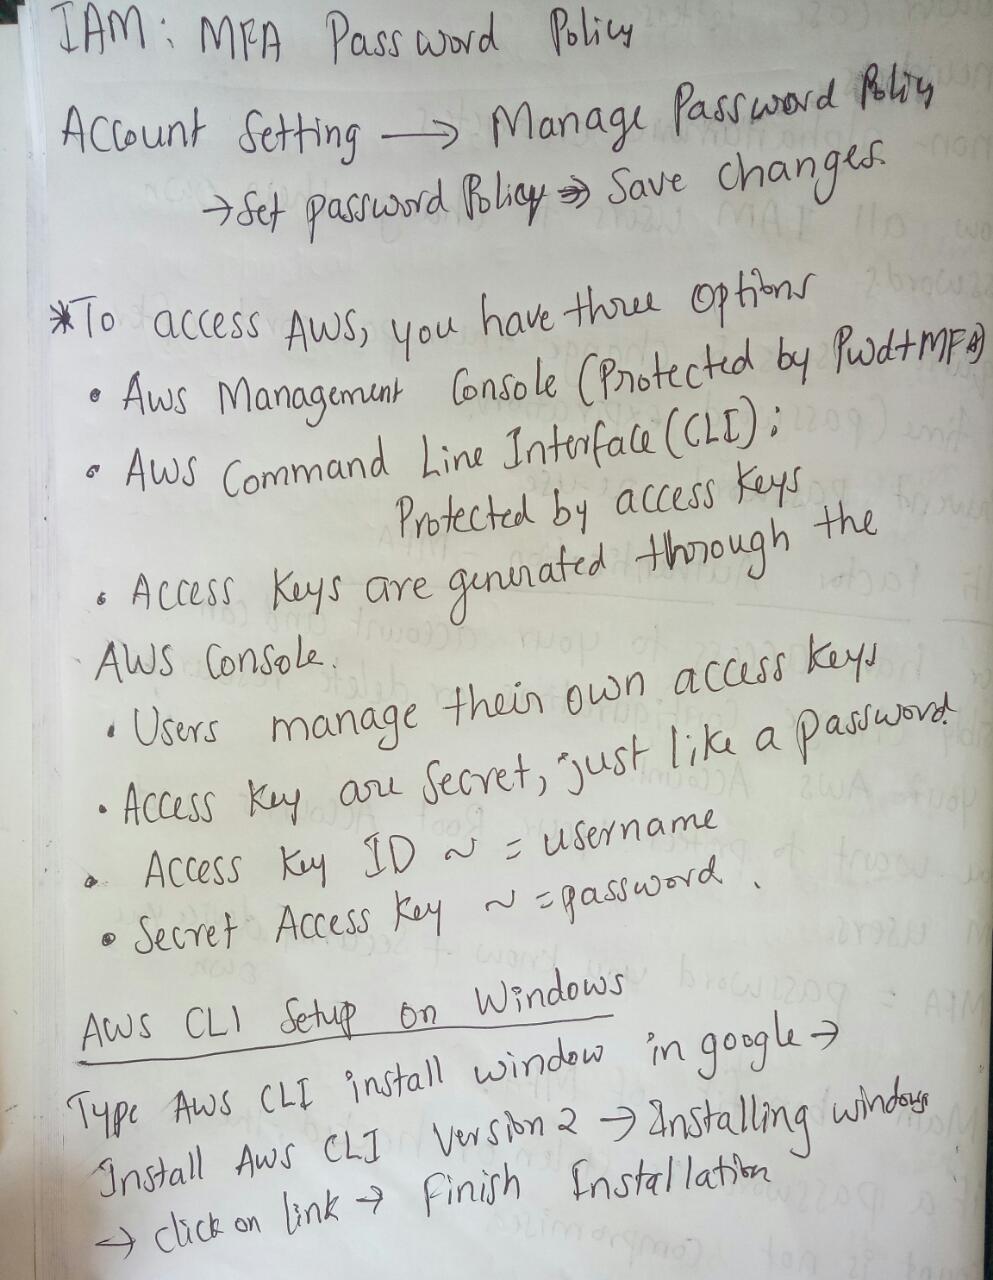 IAM: MFA Password Policy
Account Setting → Manage Password Policy
→ Set password Policy → Save changes.
*To access AWS, you have three options
• Aws Management Console (Protected by Pwd+MFA)
• AWS Command Line Interface (CLI):
Protected by access keys
• Access Keys are generated through the
AWS Console.
• Users manage their own access keys
• Access key are Secret, just like a password
• Access key ID ~ = username
• Secret Access key ~ = password.
AWS CLI Setup on Windows
Type Aws CLI install window in google →
Install Aws CLI Version 2 → Installing windows
→ click on link → Finish Installation